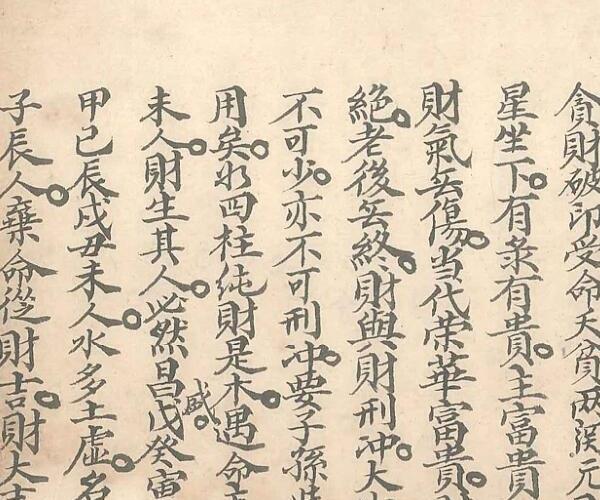 貪財破印受命夭貧两元
星坐下○有彔有貴○主富貴
財氣无傷○当代荣華富貴○
絕○老後无終○財與財刑冲○大
不可少○亦不可刑冲○要子孫
用矣○四柱纯財是木○遇命
未人○財生其人○必然昌盛○戊癸寅
甲己辰戌丑未人○水多土虛○名
子辰人○棄命從財吉○財大